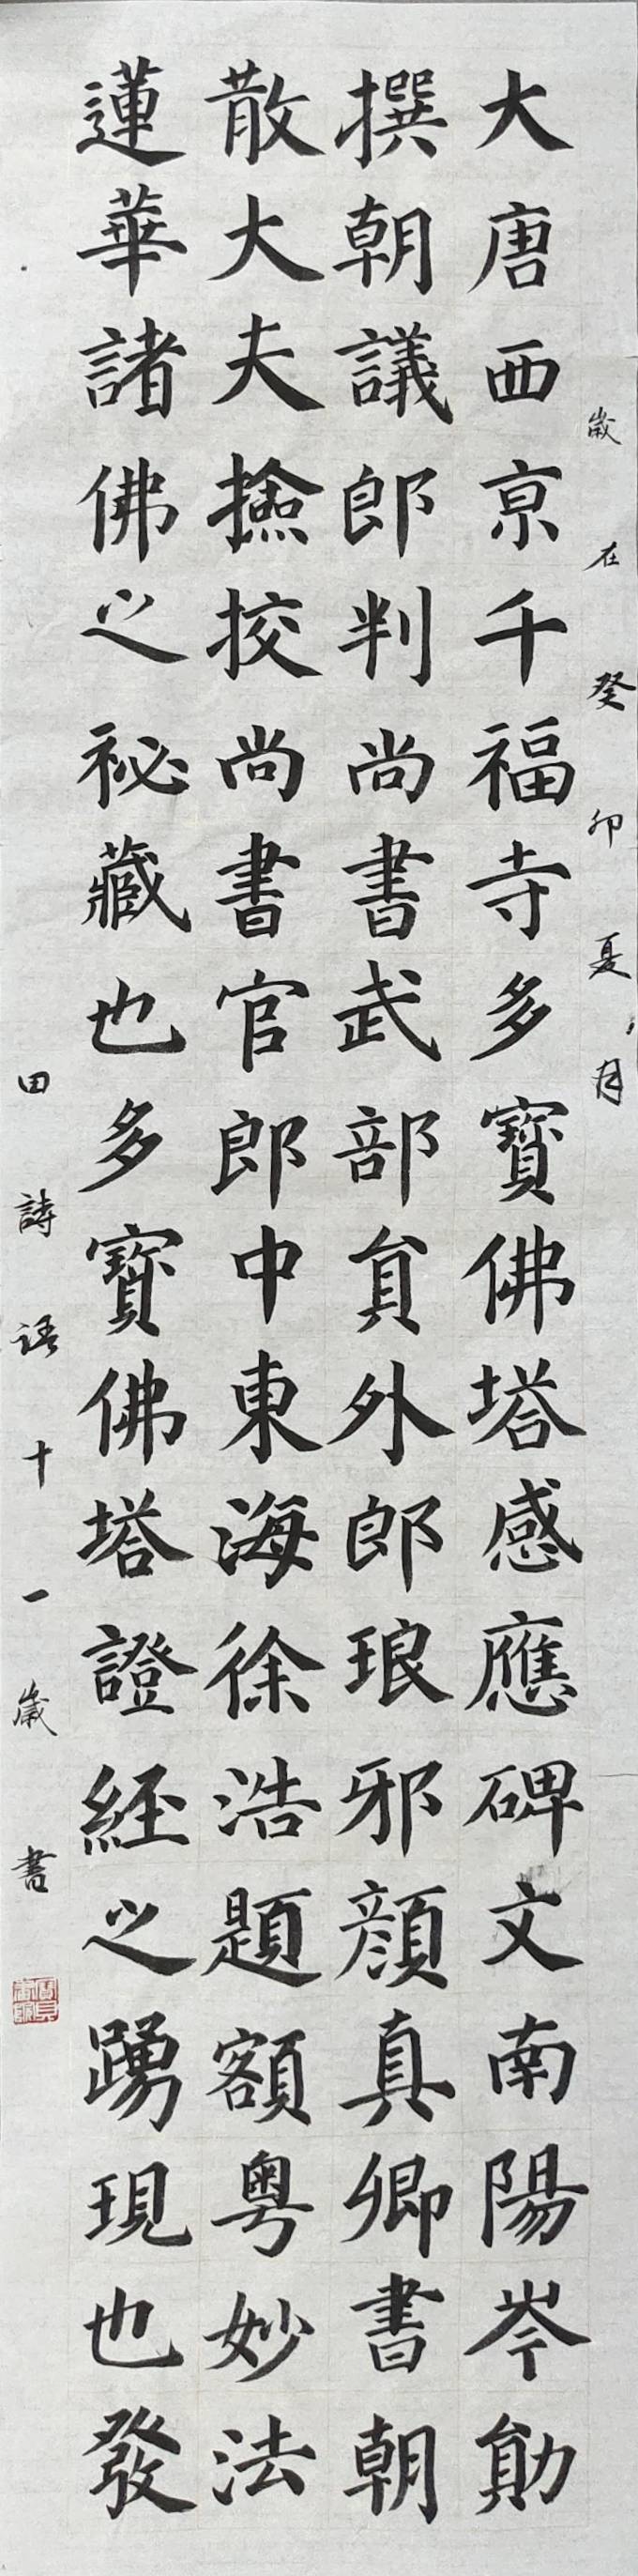 大唐西亰千福寺多寶佛塔感應碑文南陽岑勛
撰朝議郎判尚書武部貟外郎琅邪顏真卿書朝
散大夫撿挍尚書官郎中東海徐浩題額粵妙法
蓮華諸佛之祕藏也多寶佛塔證經之踴現也發
歲在癸卯夏月
田詩語十一歲書